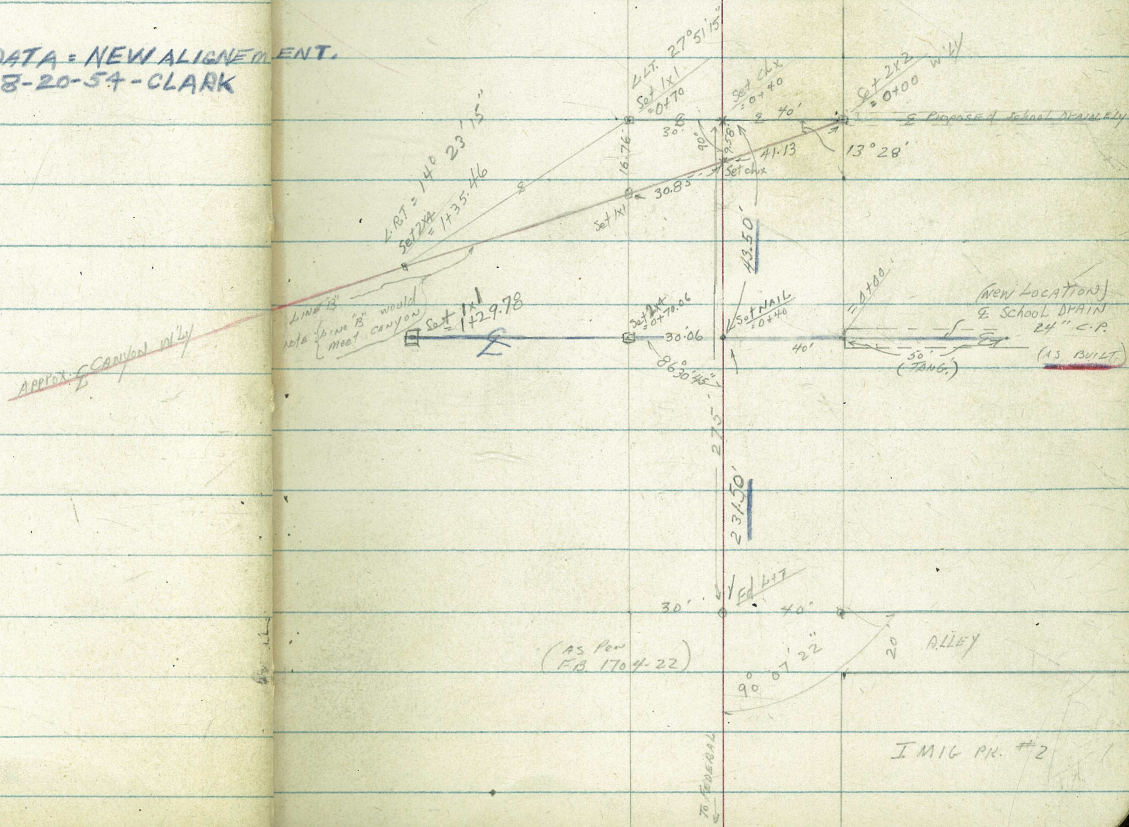 DATA = NEW ALIGNEMENT.
8-20-54-CLARK
Δ LT. 27°51'15"
Set 1x1
=0+70
Set chx
=0+40
Set 2x2
=0+00
W'LY
℄ PROPOSED SCHOOL DRAIN ELY
30'
40'
90°
9.58'
16.76
41.13
13°28'
Set chx
30.85
Set 1x1
Δ RT = 14° 23' 15"
Set 2x2
=1+35.46
℄
43.50'
LINE "B"
note { LINE "B" would
meet canyon }
APPROX. ℄ CANYON W'LY
Set 1x1
1+29.78
℄
Set 2x2
=0+70.06
30.06
86°30'45"
Set NAIL
=0+40
40'
=0+00
(NEW LOCATION)
℄ SCHOOL DRAIN
24" C.P.
50'
(TANG.)
(AS BUILT.)
275'
231.50'
Fd L+T
30'
40'
(AS PER
F.B. 1704-22)
90° 07' 22"
20'
ALLEY
I MIG PK. #2
TO FEDERAL